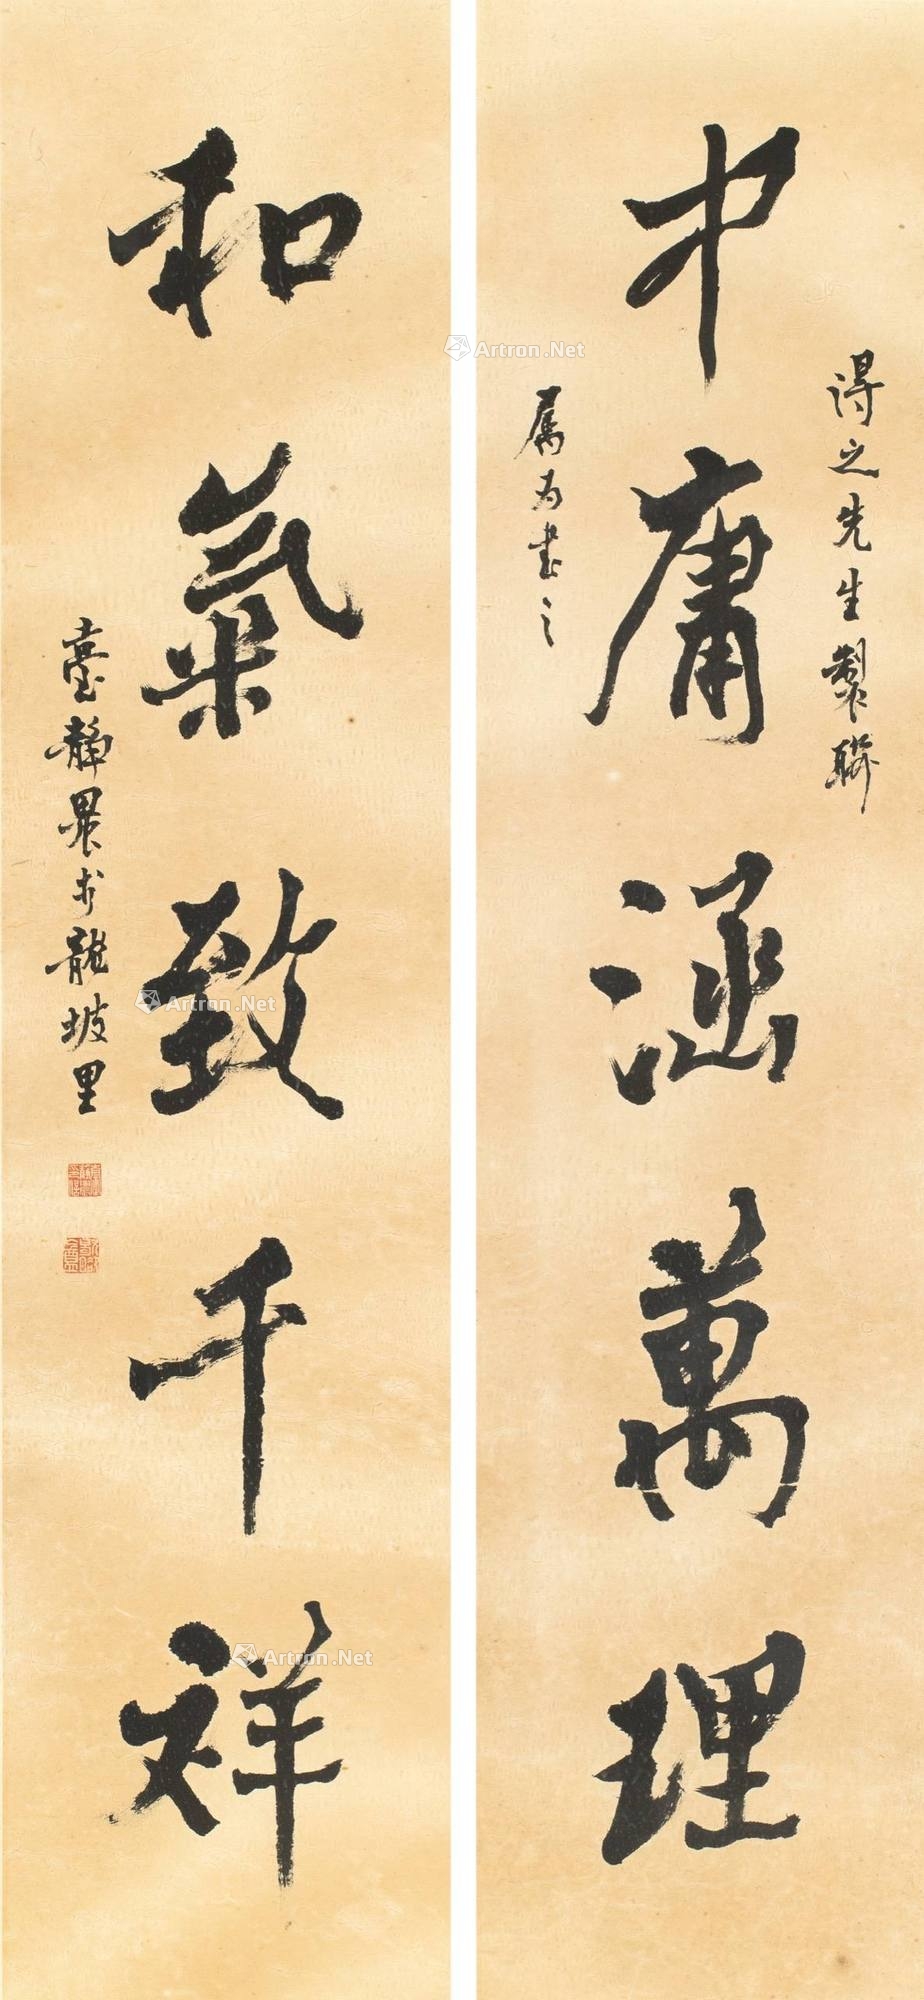 得之先生製聯
中庸涵萬理
属為書之
和氣致千祥
臺靜農於龍坡里
Artron.Net
Artron.Net
Artron.Net